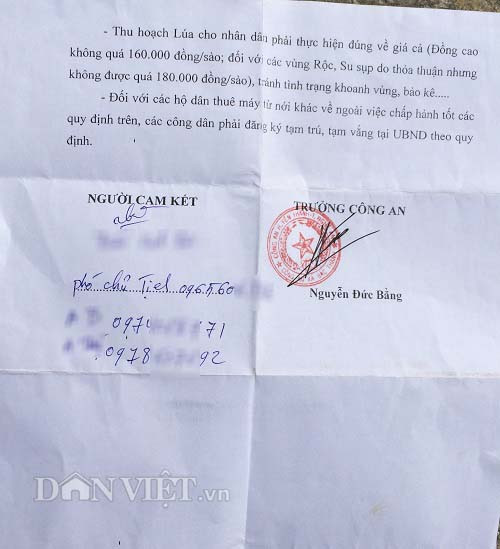 - Thu hoạch Lúa cho nhân dân phải thực hiện đúng về giá cả (Đồng cao
không quá 160.000 đồng/sào; đối với các vùng Rộc, Su sụp do thỏa thuận nhưng
không được quá 180.000 đồng/sào), tránh tình trạng khoanh vùng, bảo kê.....
- Đối với các hộ dân thuê máy từ nới khác về ngoài việc chấp hành tốt các
quy định trên, các công dân phải đăng ký tạm trú, tạm vắng tại UBND theo quy
định.
NGƯỜI CAM KẾT
TRƯỞNG CÔNG AN
phó chủ Tịch 096.5.60
Nguyễn Đức Bằng
097 71
0978 92
DÂN VIỆT.vn